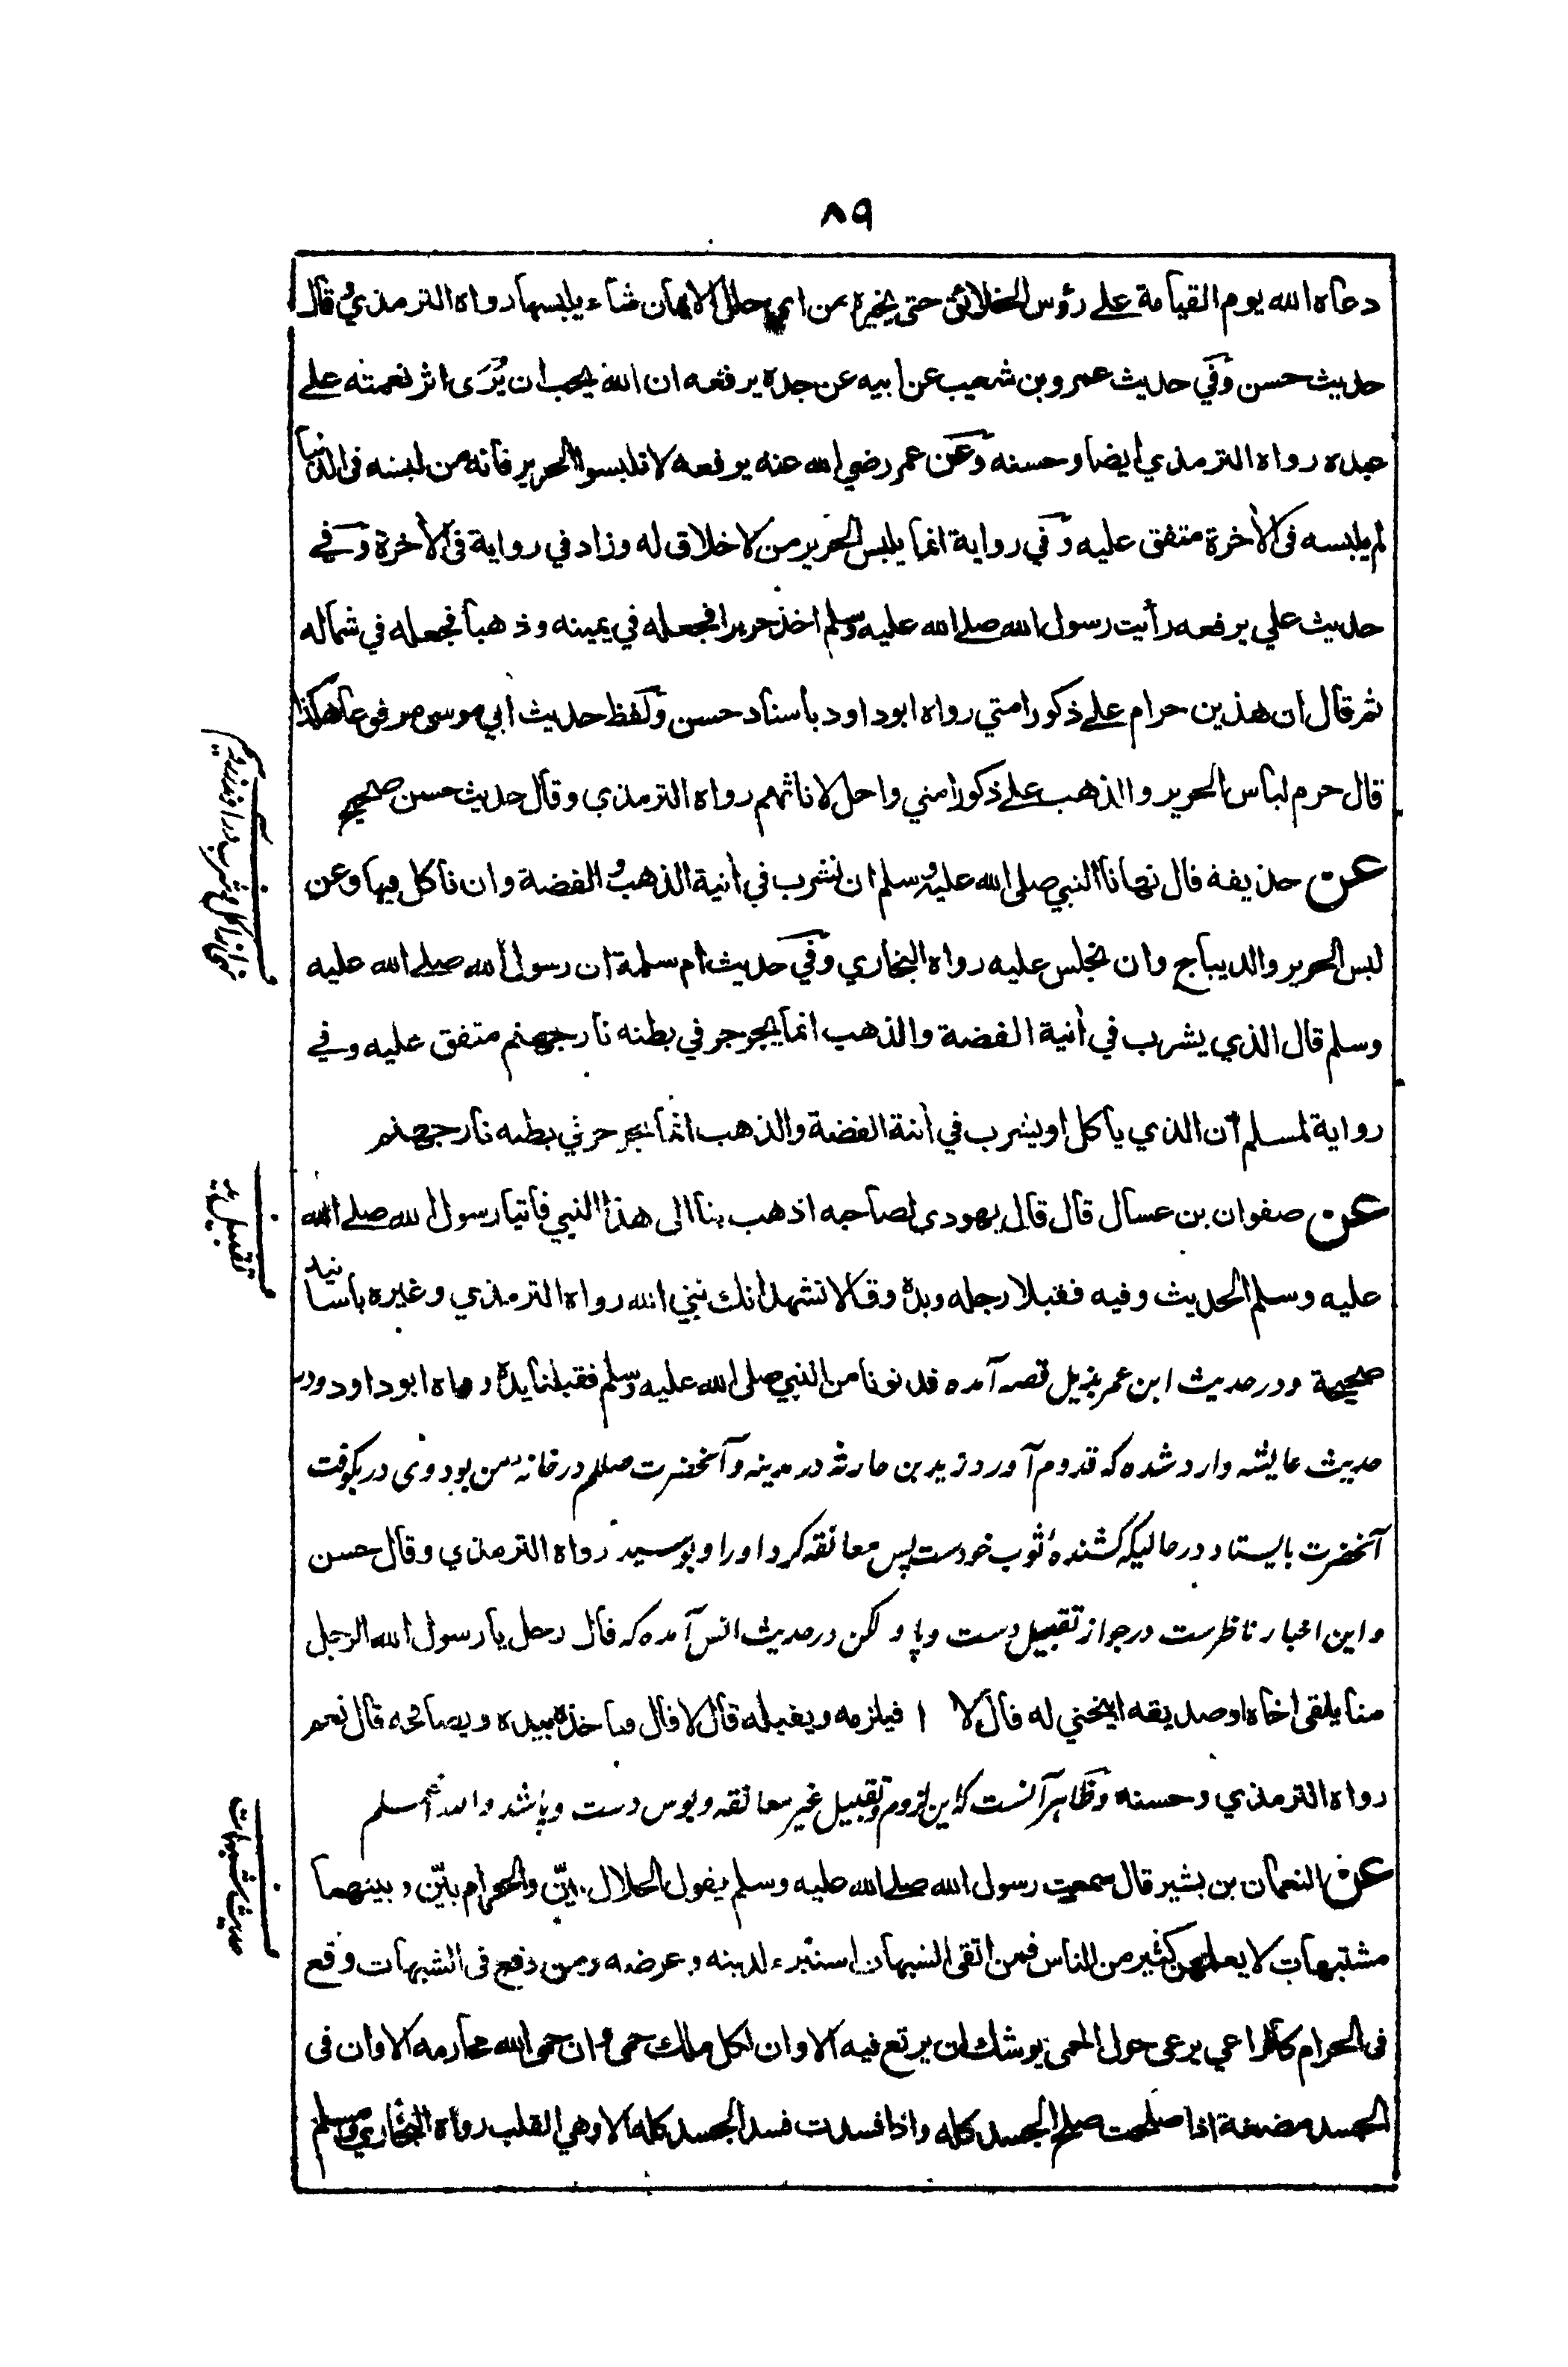 ٨٩
دعاه الله يوم القيامة على رؤس الخلائق حتى يخيره من اي حلل الايمان شاء يلبسها رواه الترمذي وقال
حديث حسن وفي حديث عمرو بن شعيب عن ابيه عن جده يرفعه ان الله يحب ان يُرَى اثر نعمته على
عبده رواه الترمذي ايضا وحسنه وعن عمر رضي الله عنه يرفعه لا تلبسوا الحرير فانه من لبسه في الدنيا
لم يلبسه فى الأخرة متفق عليه وفي رواية انما يلبس الحرير من لا خلاق له وزاد في رواية فى الأخرة وفي
حديث علي يرفعه رأيت رسول الله صلے الله عليه وسلم اخذ حريرا فجعله في يمينه وذهبا فجعله في شماله
ثم قال ان هذين حرام علے ذكور امتي رواه ابو داود باسناد حسن ولفظ حديث ابي موسى مرفوعا هكذا
قال حرم لباس الحرير والذهب علے ذكور امتي واحل لاناثهم رواه الترمذي وقال حديث حسن صحيح
عن حذيفة قال نهانا النبي صلى الله عليه وسلم ان نشرب في أنية الذهب والفضة وان نأكل فيها وعن
لبس الحرير والديباج وان نجلس عليه رواه البخاري وفي حديث ام سلمة ان رسول الله صلے الله عليه
وسلم قال الذي يشرب في أنية الفضة والذهب انما يجرجر في بطنه نار جهنم متفق عليه وفي
رواية لمسلم ان الذي يأكل او يشرب في أنية الفضة والذهب انما يجرجر في بطنه نار جهنم
عن صفوان بن عسال قال قال يهودي لصاحبه اذهب بنا الى هذا النبي فأتيا رسول الله صلے الله
عليه وسلم الحديث وفيه فقبلا رجله ويده وقالا نشهد انك نبي الله رواه الترمذي وغيره باسانيد
صحيحة ودر حديث ابن عمر بذيل قصه آمده فدنونا من النبي صلى الله عليه وسلم فقبلنا يده رواه ابو داود ودر
حديث عايشه وارد شده كه قدوم آورد زيد بن حارثه در مدينه وآنحضرت صللم در خانه من بود وى در بكوفت
آنحضرت بايستاد در حاليكه كشنده ثوب خودست پس معانقه كرد او را وبوسيد رواه الترمذي وقال حسن
واين اخبار ناظرست در جواز تقبيل دست وپا ولكن در حديث انس آمده كه قال رجل يا رسول الله الرجل
منا يلقى اخاه او صديقه اينحني له قال لا ا فيلزمه ويقبله قال لا قال فياخذه بيده ويصافحه قال نعم
رواه الترمذي وحسنه وظاهر آنست كه اين لزوم وتقبيل غير معانقه وبوس دست وپا باشد والله اعلم
عن النعمان بن بشير قال سمعت رسول الله صلے الله عليه وسلم يقول الحلال بيّن والحرام بيّن وبينهما
مشتبهات لا يعلمهن كثير من الناس فمن اتقى الشبهات استبرء لدينه وعرضه ومن وقع فى الشبهات وقع
فى الحرام كالراعي يرعى حول الحمى يوشك ان يرتع فيه الا وان لكل ملك حمى وان حمى الله محارمه الا وان فى
الجسد مضغة اذا صلحت صلح الجسد كله واذا فسدت فسد الجسد كله الا وهي القلب رواه البخاري ومسلم
تقبيل يد
حديث شبهات